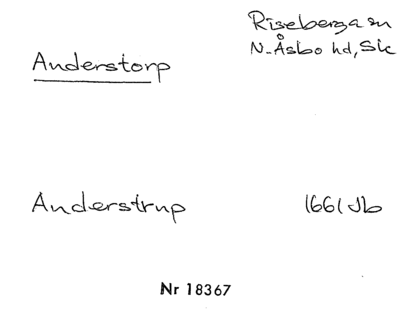 Riseberga sn
Anderstorp N. Åsbo hd, Sk
Anderstrup 1661 Jb
Nr 18367